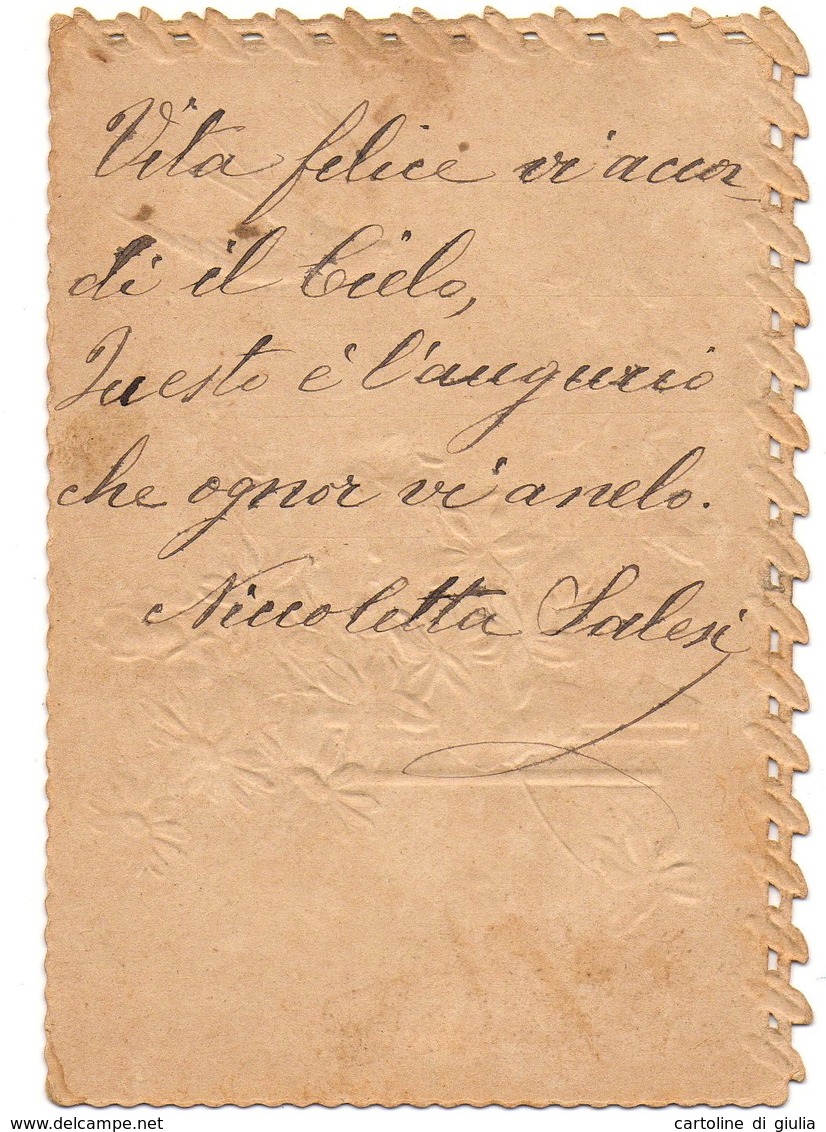 Vita felice vi accor-
di il Cielo,
Questo é l'augurio
che ognor vi anelo.
Niccoletta Salesi
www.delcampe.net
cartoline di giulia